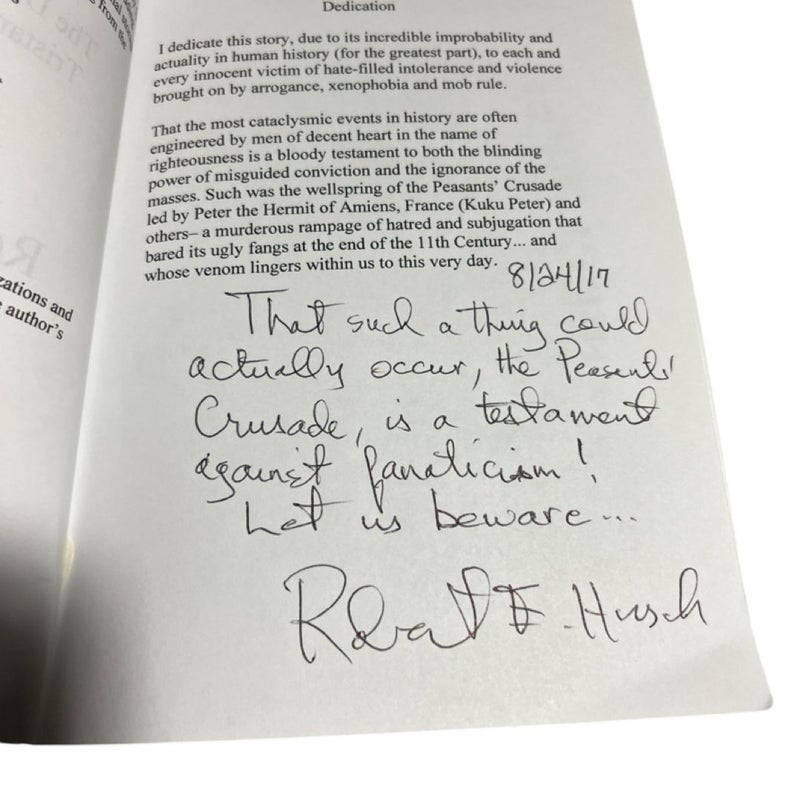 Dedication
I dedicate this story, due to its incredible improbability and
actuality in human history (for the greatest part), to each and
every innocent victim of hate-filled intolerance and violence
brought on by arrogance, xenophobia and mob rule.
That the most cataclysmic events in history are often
engineered by men of decent heart in the name of
righteousness is a bloody testament to both the blinding
power of misguided conviction and the ignorance of the
masses. Such was the wellspring of the Peasants' Crusade
led by Peter the Hermit of Amiens, France (Kuku Peter) and
others– a murderous rampage of hatred and subjugation that
bared its ugly fangs at the end of the 11th Century... and
whose venom lingers within us to this very day.
8/24/17
That such a thing could
actually occur, the Peasants'
Crusade, is a testament
against fanaticism!
Let us beware...
Robert E. Hirsch
from the
zations and
author's